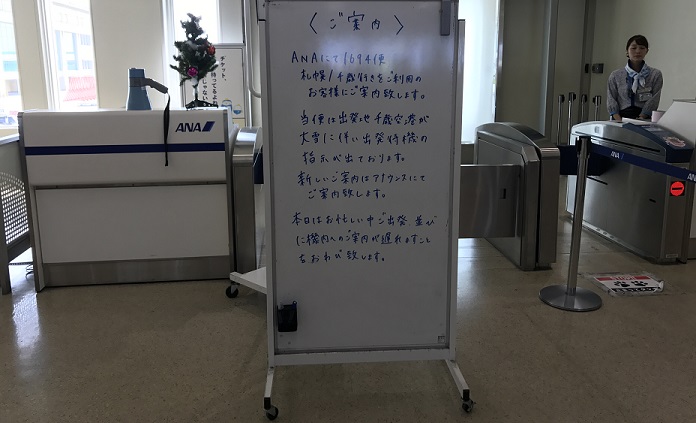 〈ご案内〉
ANAにて1694便
札幌/千歳行きをご利用の
お客様にご案内致します。
当便は出発地千歳空港が
大雪に伴い出発待機の
指示が出ております。
新しいご案内はアナウンスにて
ご案内致します。
本日はお忙しい中ご出発並び
に機内へのご案内が遅れますこと
をおわび致します。
ANA
チケット、
ANA